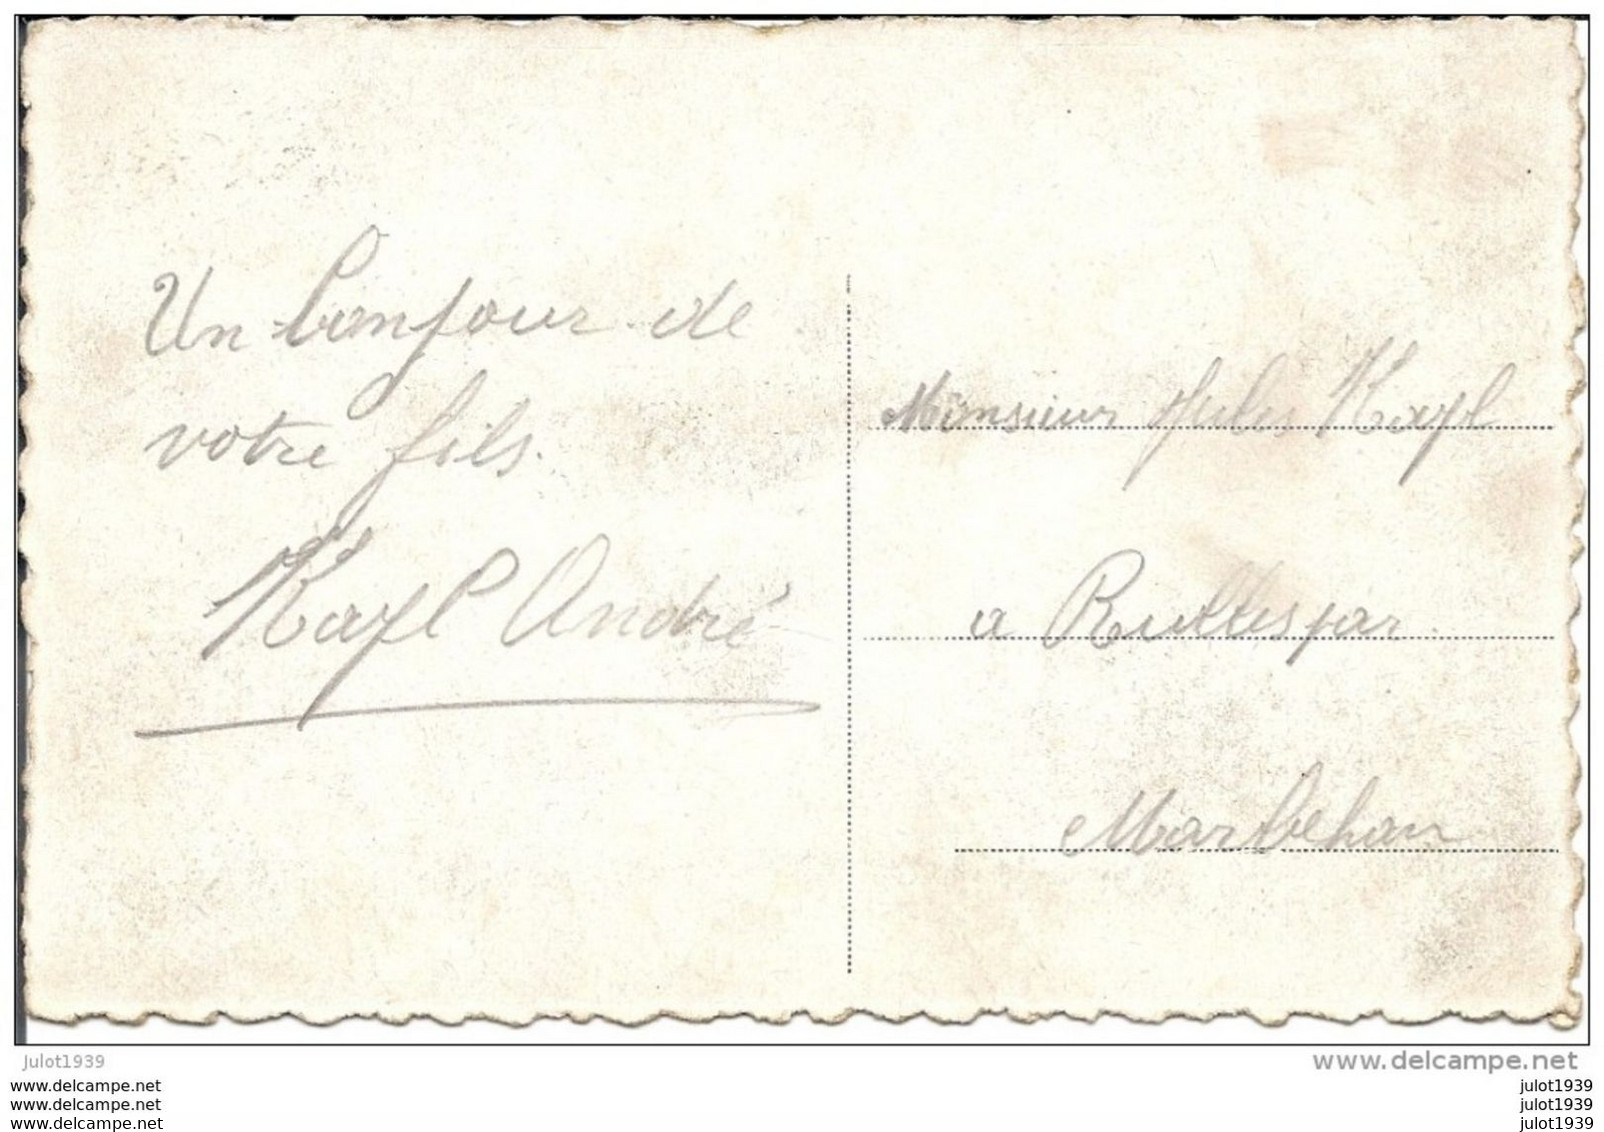 Un bonjour de
votre fils.
Kayl André
Monsieur Jules Kayl
a Rulles par
Marbehan
www.delcampe.net
julot1939
www.delcampe.net
www.delcampe.net
www.delcampe.net
julot1939
julot1939
julot1939